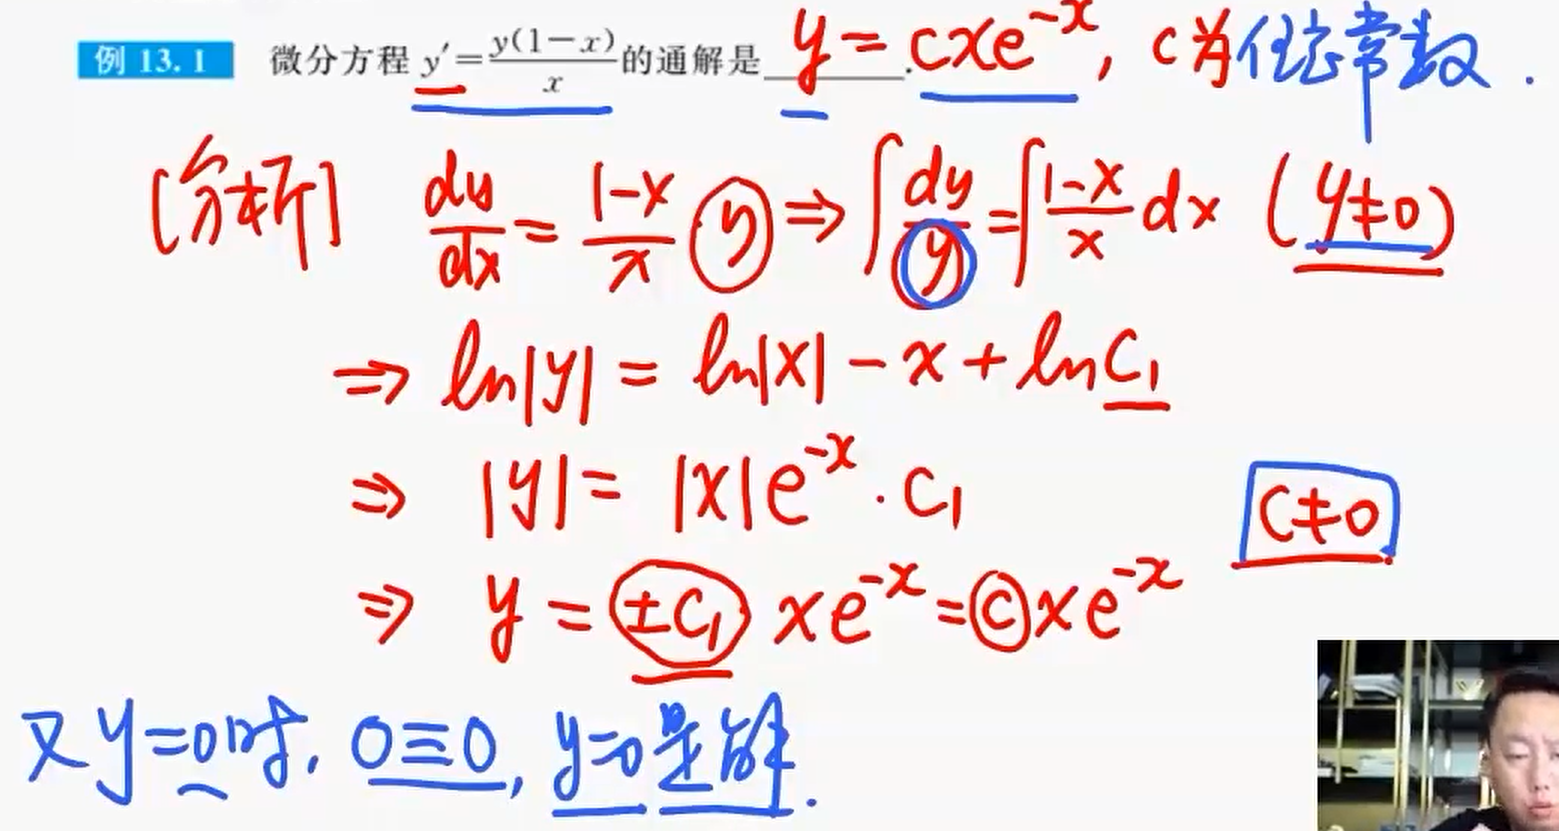 例 13.1 微分方程 y′=y(1−x)/x 的通解是________. y=cxe^{-x}, c为任意常数.
[分析] dy/dx = (1-x)/x y ⇒ ∫dy/y = ∫(1-x)/x dx (y≠0)
⇒ ln|y| = ln|x| - x + lnC₁
⇒ |y| = |x|e^{-x}·C₁
C≠0
⇒ y = ±C₁ xe^{-x} = Cxe^{-x}
又y=0时, 0≡0, y=0是解.